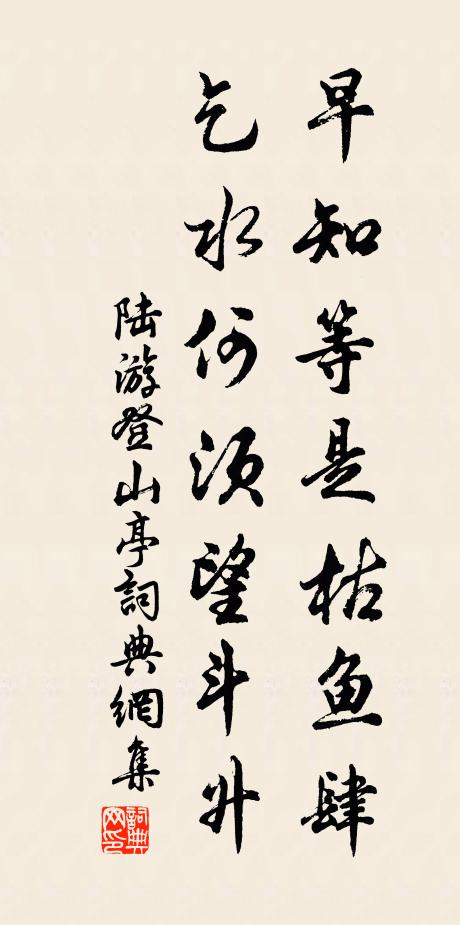 早知等是枯鱼肆
乞水何须望斗升
陆游登山亭詞典網集
詞典网印